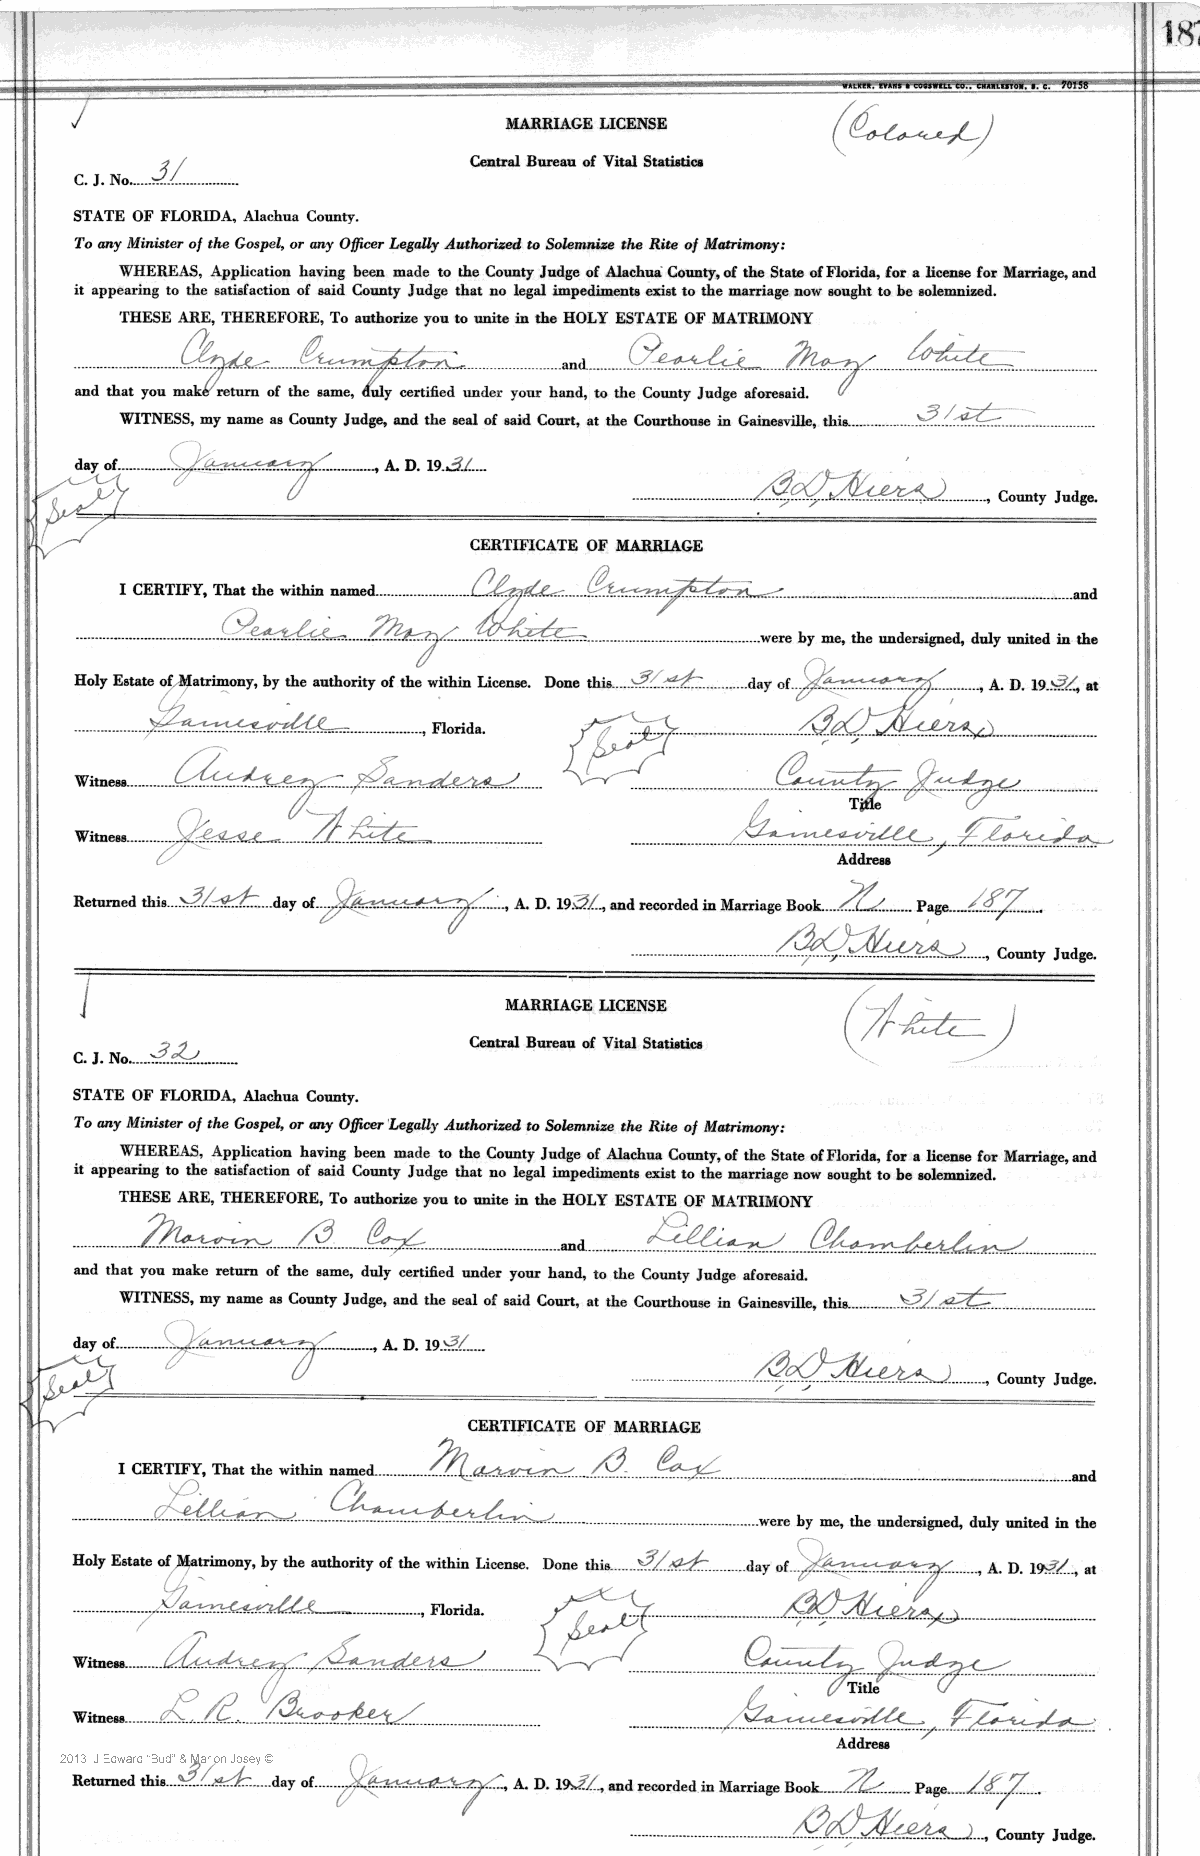 187
WALKER, EVANS & COGSWELL CO., CHARLESTON, S. C. 70158
MARRIAGE LICENSE
(Colored)
Central Bureau of Vital Statistics
C. J. No. 31
STATE OF FLORIDA, Alachua County.
To any Minister of the Gospel, or any Officer Legally Authorized to Solemnize the Rite of Matrimony:
WHEREAS, Application having been made to the County Judge of Alachua County, of the State of Florida, for a license for Marriage, and
it appearing to the satisfaction of said County Judge that no legal impediments exist to the marriage now sought to be solemnized.
THESE ARE, THEREFORE, To authorize you to unite in the HOLY ESTATE OF MATRIMONY
Clyde Crumpton and Pearlie May White
and that you make return of the same, duly certified under your hand, to the County Judge aforesaid.
WITNESS, my name as County Judge, and the seal of said Court, at the Courthouse in Gainesville, this 31st
day of January, A. D. 1931
Seal
B.D. Hiers, County Judge.
CERTIFICATE OF MARRIAGE
I CERTIFY, That the within named Clyde Crumpton and
Pearlie May White were by me, the undersigned, duly united in the
Holy Estate of Matrimony, by the authority of the within License. Done this 31st day of January, A. D. 1931, at
Gainesville, Florida. Seal B.D. Hiers
Witness Audrey Sanders County Judge
Title
Witness Jesse White Gainesville, Florida
Address
Returned this 31st day of January, A. D. 1931, and recorded in Marriage Book N Page 187
B.D. Hiers, County Judge.
MARRIAGE LICENSE
(White)
Central Bureau of Vital Statistics
C. J. No. 32
STATE OF FLORIDA, Alachua County.
To any Minister of the Gospel, or any Officer Legally Authorized to Solemnize the Rite of Matrimony:
WHEREAS, Application having been made to the County Judge of Alachua County, of the State of Florida, for a license for Marriage, and
it appearing to the satisfaction of said County Judge that no legal impediments exist to the marriage now sought to be solemnized.
THESE ARE, THEREFORE, To authorize you to unite in the HOLY ESTATE OF MATRIMONY
Marvin B. Cox and Lillian Chamberlin
and that you make return of the same, duly certified under your hand, to the County Judge aforesaid.
WITNESS, my name as County Judge, and the seal of said Court, at the Courthouse in Gainesville, this 31st
day of January, A. D. 1931
Seal
B.D. Hiers, County Judge.
CERTIFICATE OF MARRIAGE
I CERTIFY, That the within named Marvin B. Cox and
Lillian Chamberlin were by me, the undersigned, duly united in the
Holy Estate of Matrimony, by the authority of the within License. Done this 31st day of January, A. D. 1931, at
Gainesville, Florida. Seal B.D. Hiers
Witness Audrey Sanders County Judge
Title
Witness L. R. Brooker Gainesville, Florida
Address
2013 J Edward "Bud" & Marion Josey ©
Returned this 31st day of January, A. D. 1931, and recorded in Marriage Book N Page 187
B.D. Hiers, County Judge.